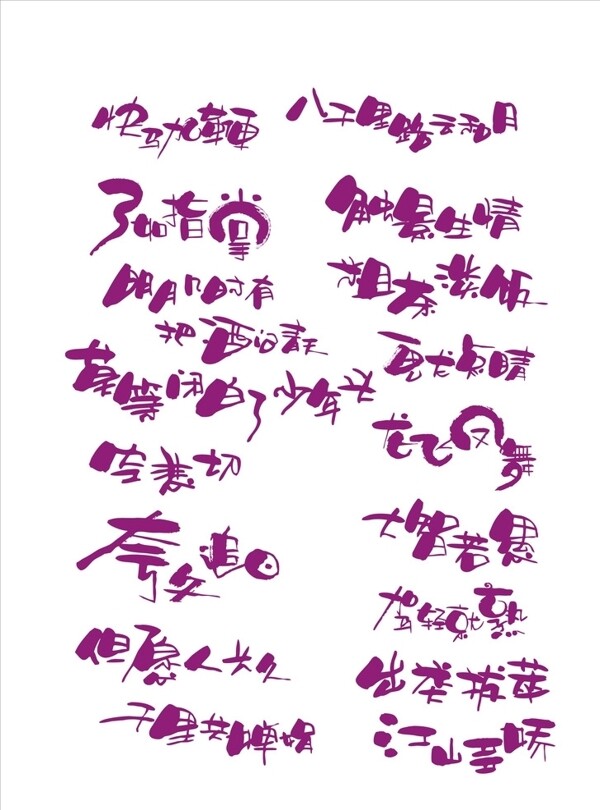 快马加鞭
八千里路云和月
了如指掌
触景生情
明月几时有
粗茶淡饭
把酒问青天
画龙点睛
莫等闲白了少年头
龙飞凤舞
空悲切
大智若愚
夸父追日
驾轻就熟
但愿人长久
出类拔萃
千里共婵娟
江山多娇